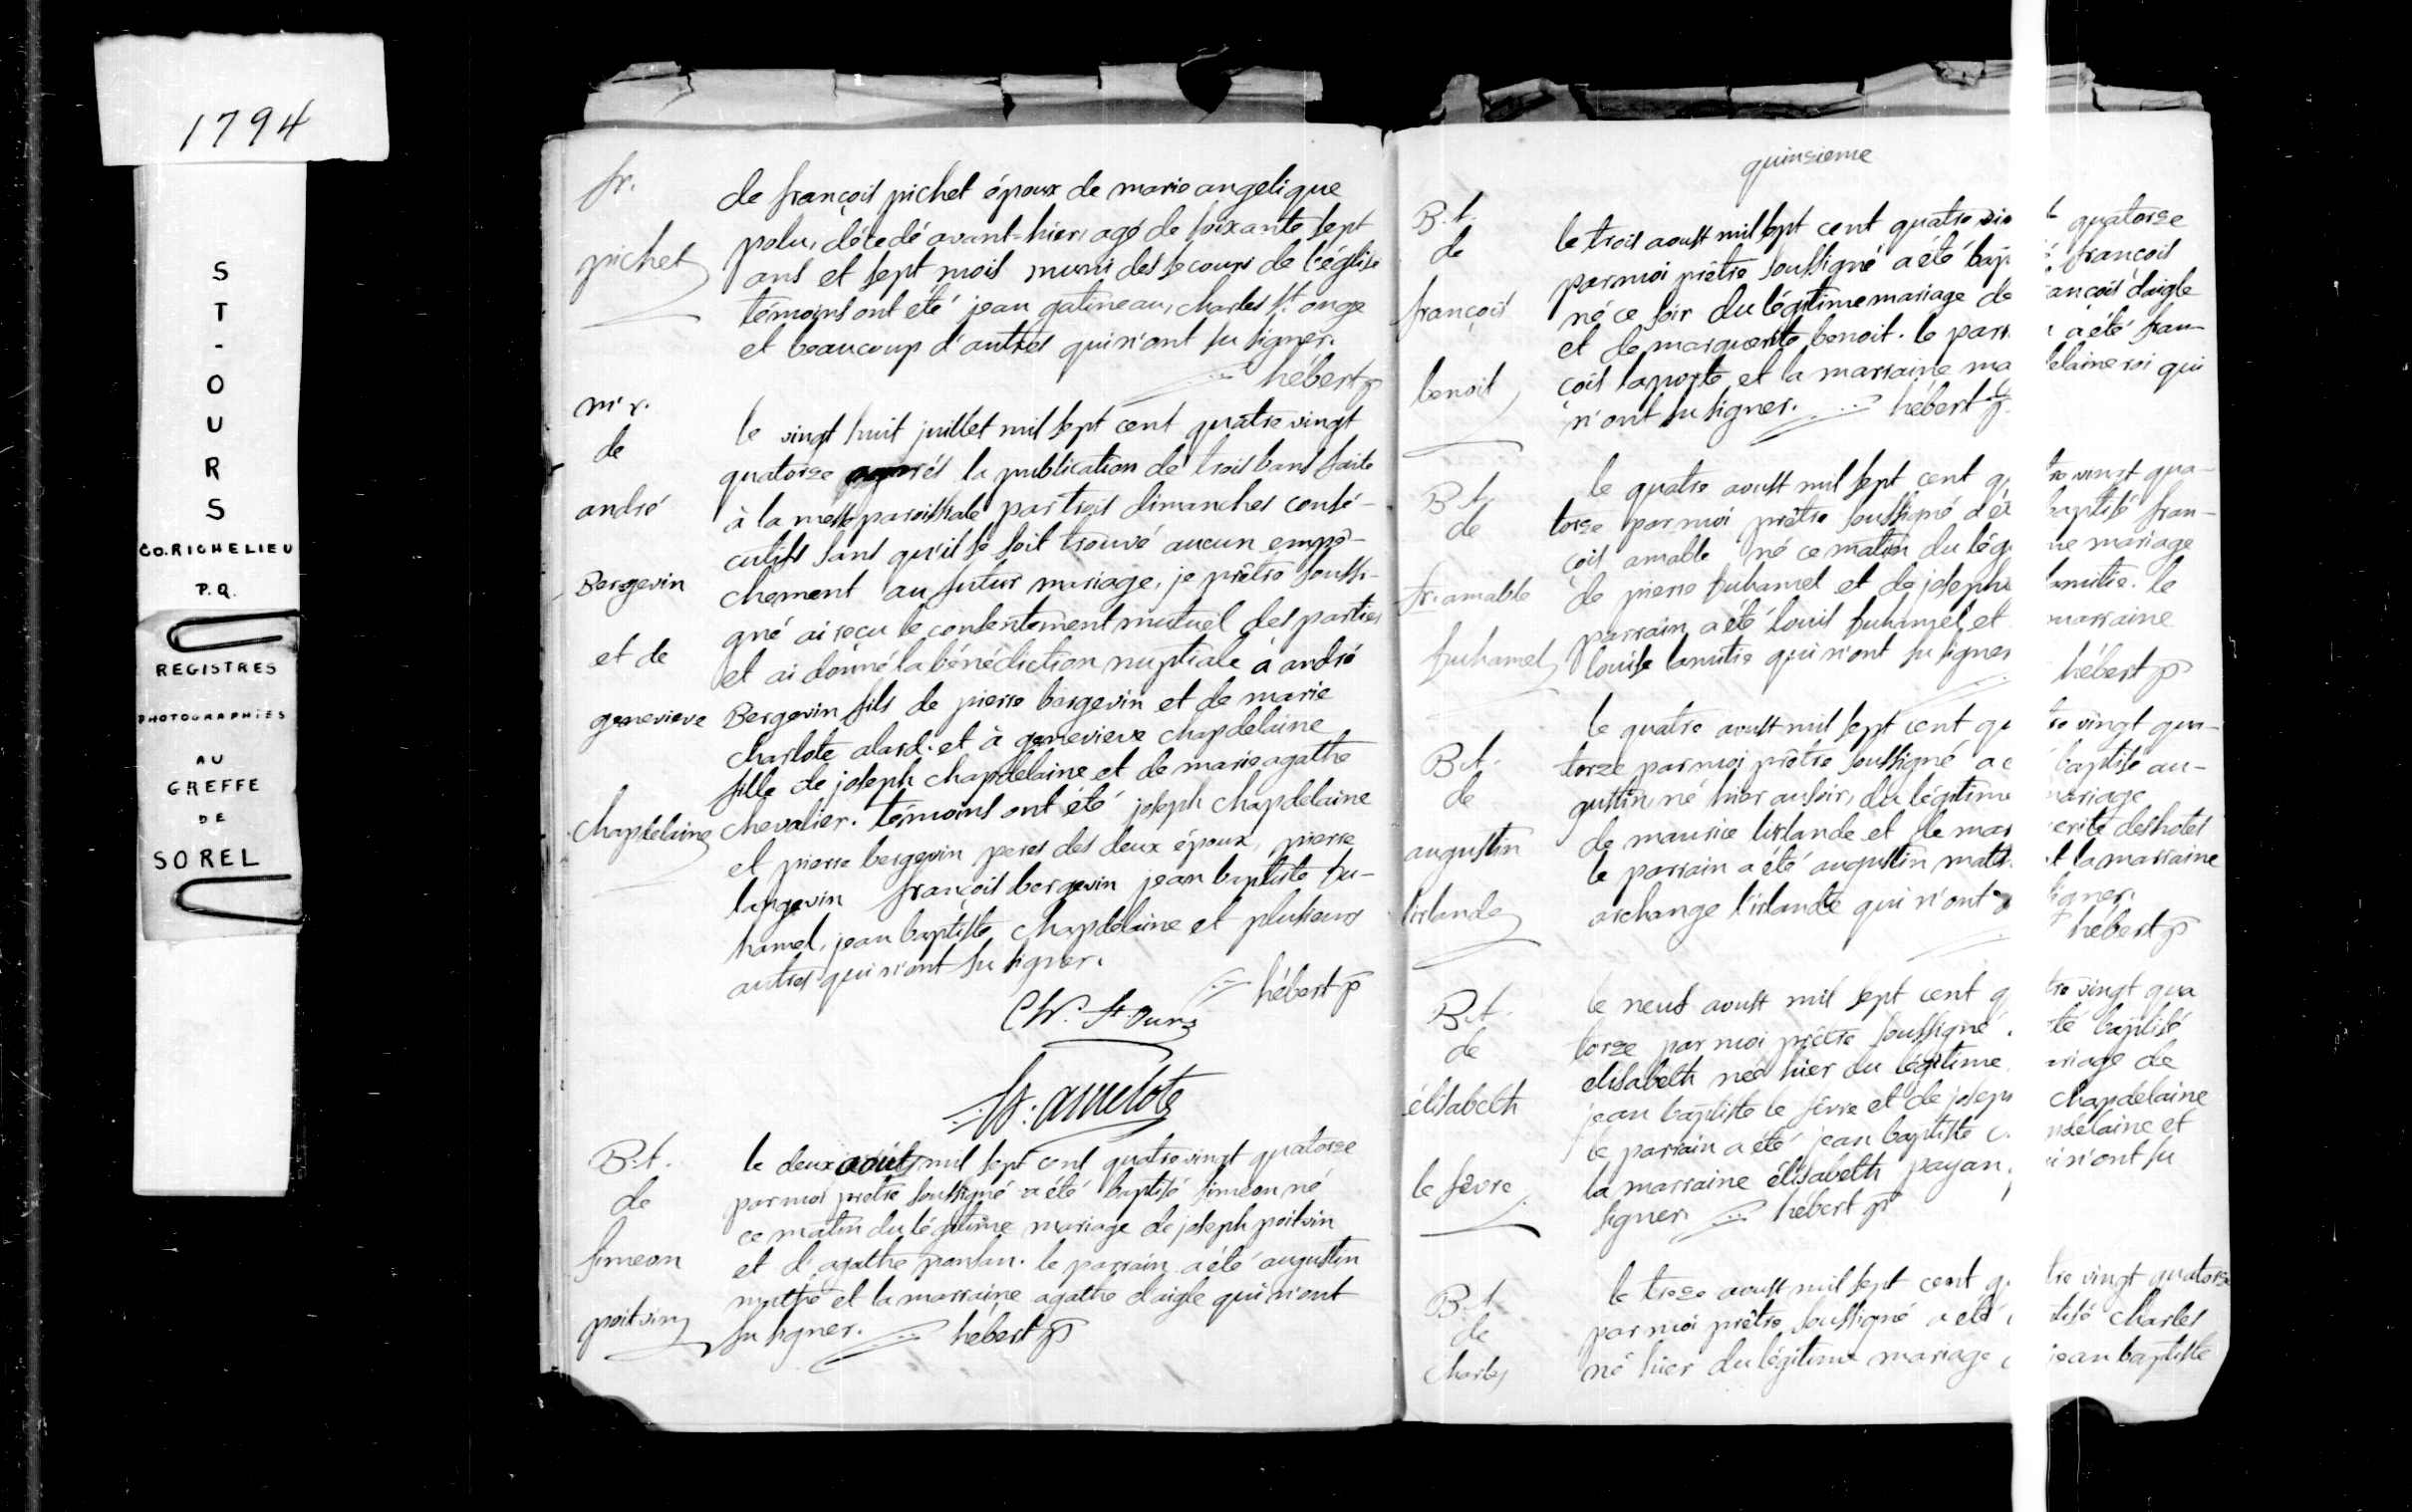 1794
S
T
-
O
U
R
S
CO. RICHELIEU
P.Q.
REGISTRES
PHOTOGRAPHIES
AU
GREFFE
DE
SOREL
fr.
pichet
de françois pichet époux de marie angelique
polu, décedé avant-hier, agé de soixante sept
ans et sept mois muni des secours de l'église
témoins ont eté jean gatineau, charles st. onge
et beaucoup d'autres qui n'ont su signer.
hébert p
m. r.
de
andré
Bergevin
et de
genevieve
chapdelaine
le vingt huit juillet mil sept cent quatre vingt
quatorze après la publication de trois bans faite
à la messe paroissiale par trois dimanches consé-
cutifs sans qu'il se soit trouvé aucun empê-
chement au futur mariage, je prêtre soussi-
gné ai reçu le consentement mutuel des parties
et ai donné la bénédiction nuptiale à andré
Bergevin fils de pierre bergevin et de marie
charlote alard. et à genevieve chapdelaine
fille de joseph chapdelaine et de marie agathe
chevalier. témoins ont été joseph chapdelaine
et pierre bergevin peres des deux époux, pierre
langevin françois bergevin jean baptiste du-
hamel, jean baptiste chapdelaine et plusieurs
autres qui n'ont su signer.
hébert p
Ch. St. Ours
amelote
B.t.
de
simeon
poitvin
le deux août mil sept cent quatre vingt quatorze
par moi prêtre soussigné a été baptisé simeon né
ce matin du légitime mariage de joseph poitvin
et d'agathe pansan. le parrain a été augustin
mathé et la marraine agathe daigle qui n'ont
su signer. hébert p
quinzieme
B.t.
de
françois
benoit
le trois aoust mil sept cent quatre vin t quatorze
par moi prêtre soussigné a été bap é françois
né ce soir du légitime mariage de ançois daigle
et de marguerite benoit. le parr n a été fran-
çois laporte et la marraine ma delaine roi qui
n'ont su signer. hébert p.
B.t.
de
fr. amable
duhamel
le quatre aoust mil sept cent q tre vingt qua-
torze par moi prêtre soussigné a ét baptisé fran-
çois amable né ce matin du légi me mariage
de pierre duhamel et de josephe lamitie. le
parrain a été louis duhamel et marraine
louise lamitie qui n'ont su signer hébert p
B.t.
de
augustin
l'irlande
le quatre aoust mil sept cent qu tre vingt qua-
torze par moi prêtre soussigné a é baptisé au-
gustin, né hier au soir, du légitime mariage
de maurice lirlande et de mar erite deshotel
le parrain a été augustin math et la marraine
archange l'irlande qui n'ont s signer.
hébert p
B.t.
de
élisabeth
le fêvre
le neuf aoust mil sept cent q tre vingt qua
torze par moi prêtre soussigné té baptisé
elisabeth née hier du légitime ariage de
jean baptiste le fêvre et de josep chapdelaine
le parrain a été jean baptiste c pdelaine et
la marraine élisabeth payan, i n'ont su
signer. hébert p
B.t.
de
charles
le treze aoust mil sept cent q tre vingt quatorze
par moi prêtre soussigné a eté tisé charles
né hier du légitime mariage d jean baptiste